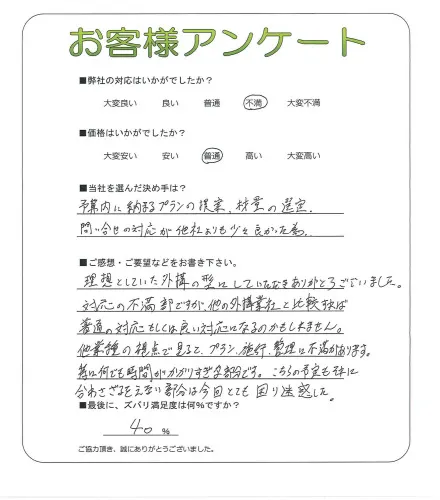 お客様アンケート
■弊社の対応はいかがでしたか？
大変良い 良い 普通 不満 大変不満
■価格はいかがでしたか？
大変安い 安い 普通 高い 大変高い
■当社を選んだ決め手は？
予算内に納まるプランの提案、材量の選定、
問い合せの対応が他社よりも少々良かった為。
■ご感想・ご要望などをお書き下さい。
理想としていた外構の型にしていただきありがとうございました。
対応の不満部ですが、他の外構業社と比較すれば
普通の対応もしくは良い対応になるのかもしれません。
他業種の視点で見ると、プラン、施行、整理に不満があります。
特に何でも時間がかかりすぎる部分です。こちらの予定も
合わさざるをえない部分は今回とても困り迷惑した。
■最後に、ズバリ満足度は何%ですか？
40 %
ご協力頂き、誠にありがとうございました。